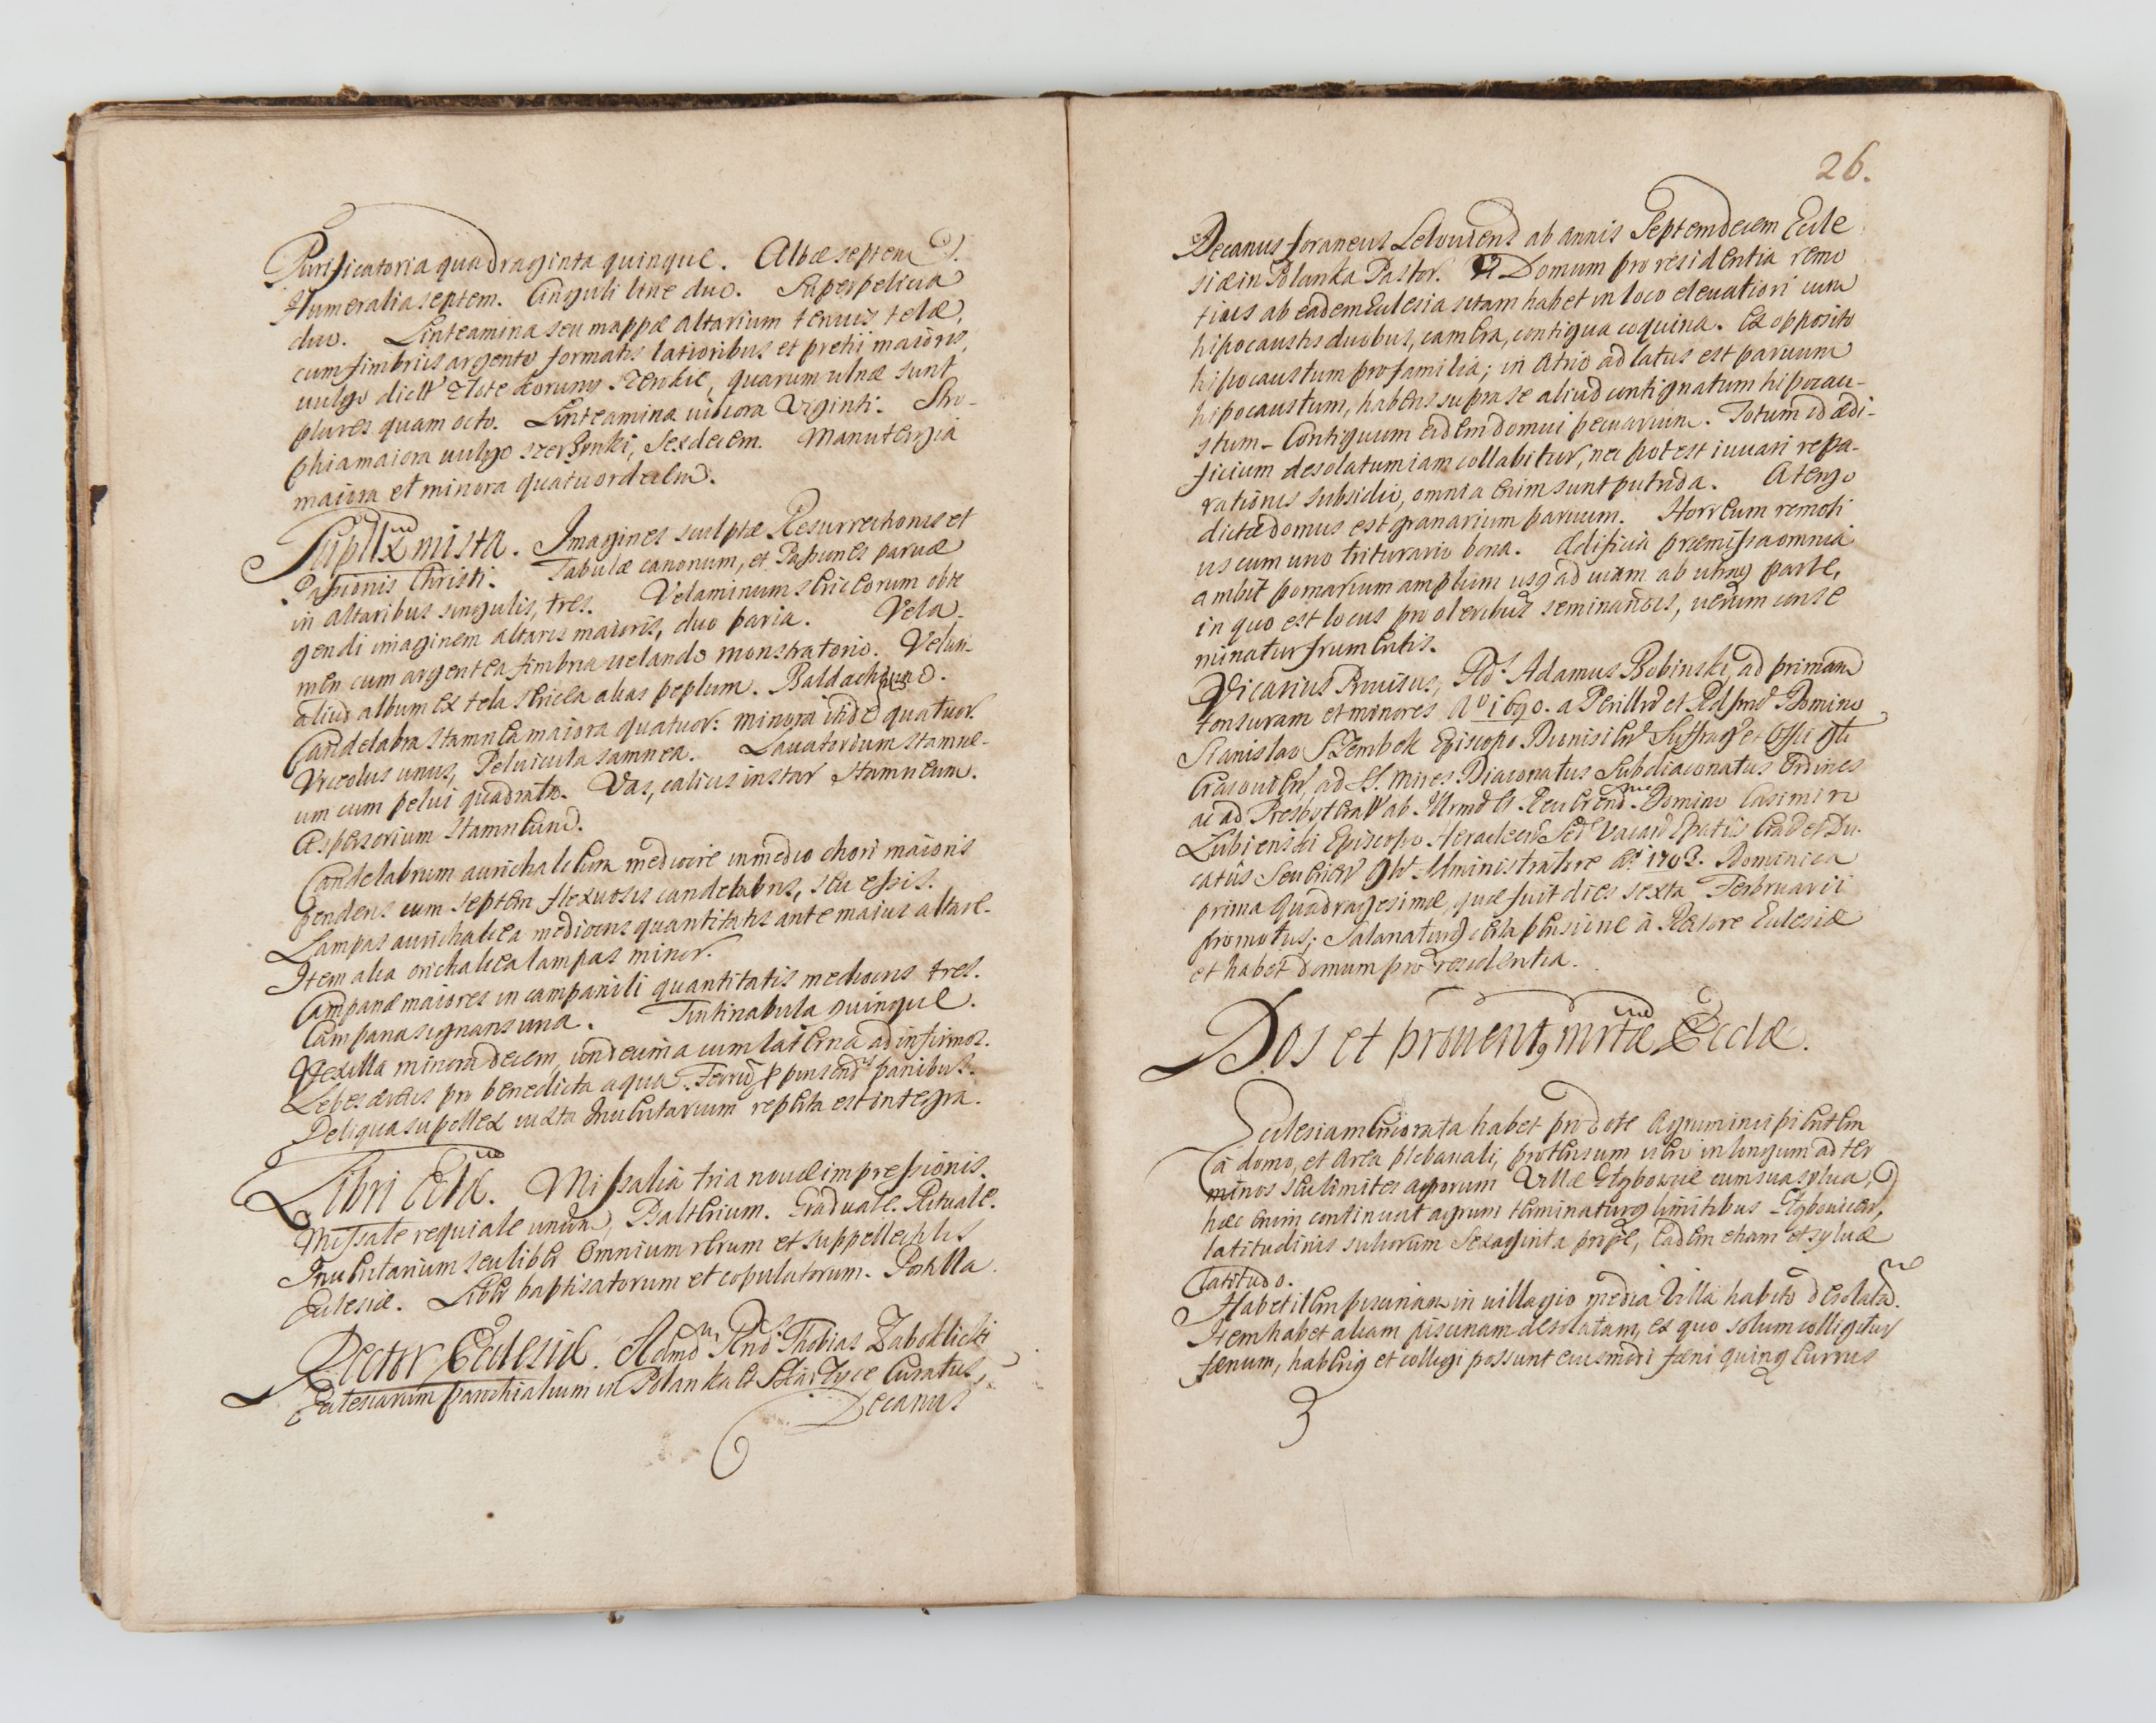 Purificatoria quadraginta quinque. Albæ septem
Humeralia septem. Cinguli line duo. Superpelicia
duo. Linteamina seu mappæ altarium tenuis telæ,
cum fimbriis argento formatis latioribus et pretii maioris,
uulgo dictt Zlote korunny Szerokie, quarum ulnæ sunt
plures quam octo. Linteamina uiliora Viginti. Stro-
phia maiora uulgo, Sexdecem. Manutergia
maiora et minora quatuordecim.
Supllex mista. Imagines sculptæ Resurrectionis et
Passionis Christi. Tabulæ canonum, et Passiones paruæ
in altaribus singulis, tres. Velaminum sericeorum obte
gendi imaginem altaris maioris, duo paria. Vela
men cum argentea fimbria uelando monstratorio. Velam-
aliud album ex tela sericea alias peplum. Baldachinũ.
Candelabra stamnea maiora quatuor: minora itide quatuor.
Vrceolus unus, Peluicula samnea. Lauatorium stamne-
um cum pelui quadrata. Vas, calicis instar stamneum.
Aspersorium stamneum.
Candelabrum aurichalceum mediocre in medio chori maioris
pendens cum septem flexuosis candelabris, seu
Lampas aurichalcea mediocris quantitatis ante maius altare.
Item alia orichalcea lampas minor.
Campanæ maiores in campanili quantitatis mediocris tres.
Campana signans una. Tintinabula quinque.
Vexilla minora decem, undecima cum laterna ad infirmos.
Lebes pro benedicta aqua. Ferrũ p pinsend panibus.
Reliqua supellex iuxta Inuentarium reperta est integra.
Libri Eccl. Missalia tria nouæ impressionis.
Missale requiale unum, Psalterium. Graduale. Rituale.
Inuentarium seu liber omnium rerum et suppellectilis
Eclesiæ. Liber baptisatorum et copulatorum. Postilla.
Rector Eclesiæ. Admd Rnds Thobias Zaboklicki
Eclesiarum parochialium in Polanka et Curatus,
Decanus
26.
Decanus foraneus ab annis Septemdecem Ecle
siæ in Polanka Pastor. Domum pro residentia remo
tius ab eadem Eclesia sitam habet in loco eleuatiori cum
hipocaustis duobus, camera, contigua coquina. Ex opposito
hipocaustum pro familia; in Atrio ad latus est paruum
hipocaustum, habens supra se aliud contignatum hipocau-
stum. Contiguum eidem domui pecuarium. Totum id ædi-
ficium desolatum iam collabitur, nec potest iuuari repa-
rationis subsidio, omnia enim sunt putrida. A tergo
dictæ domus est granarium paruum. Horreum remoti
us cum uno triturario bona. Ædificia præmissa omnia
ambit pomarium amplum usq ad uiam ab utraq parte,
in quo est locus pro oleribus seminandis, uerum conse
minatur frumentis.
Vicarius Prouisus, Rds Adamus Bobinski, ad primam
tonsuram et minores Aº 1690. a Perillri et Rdssmo Domino
Stanislao Szembek Episcopo Dionisien Suffrag et Offi gli
Cracouien, ad SS. mires Diaconatus Subdiaconatus Ordines
ac ad Presbyterat ab Illrmo et Reuerend. Domino Casimiro
Lubienski Episcopo Heracleen Sed Vacan Epatûs Crac et Du-
catûs Seuerien Gn Administratore Aº 1703. Dominica
prima Quadragesimæ, quæ fuit dies sexta Februarii
promotus; Salariaturq certa pensione à Rectore Eclesiæ
et habet domum pro residentia.
Dos et prouent9 mrtæ Ecclæ.
Eclesia memorata habet pro dote Agrum incipientem
à domo, et Area plebanali, protensum uero in longum ad ter
minos seu limites agrorum Villæ Głębowice cum sua sylua,
hæc enim continuat agrum terminaturq limitibus Głęboviceñ,
latitudinis sulcorum sexaginta prope, eadem etiam est syluæ
latitudo.
Habet item piscinam in uillagio media Villa habito desolatã.
Item habet aliam piscinam desolatam, ex quo solum colligitur
fænum, haberiq et collegi possunt eiusmodi fæni quinq currus
3